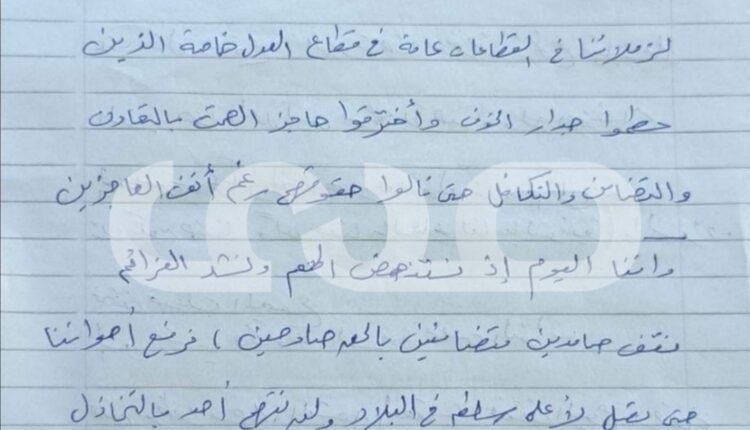 لزملائنا في القطاعات عامة في قطاع العدل خاصة الذين
حطموا جدار الخوف وأخترقوا حاجز الصمت بالتعاون
والتضامن والتكافل حتى نالوا حقوقهم رغم أنف العاجزين
واننا اليوم إذ نستنهض الهمم ونشد العزائم
نقف صامدين متضامنين بالحق صادحين ) نرفع أصواتنا
حتى تصل لأعلى سلطه في البلاد ولا نتهم أحد بالتخاذل